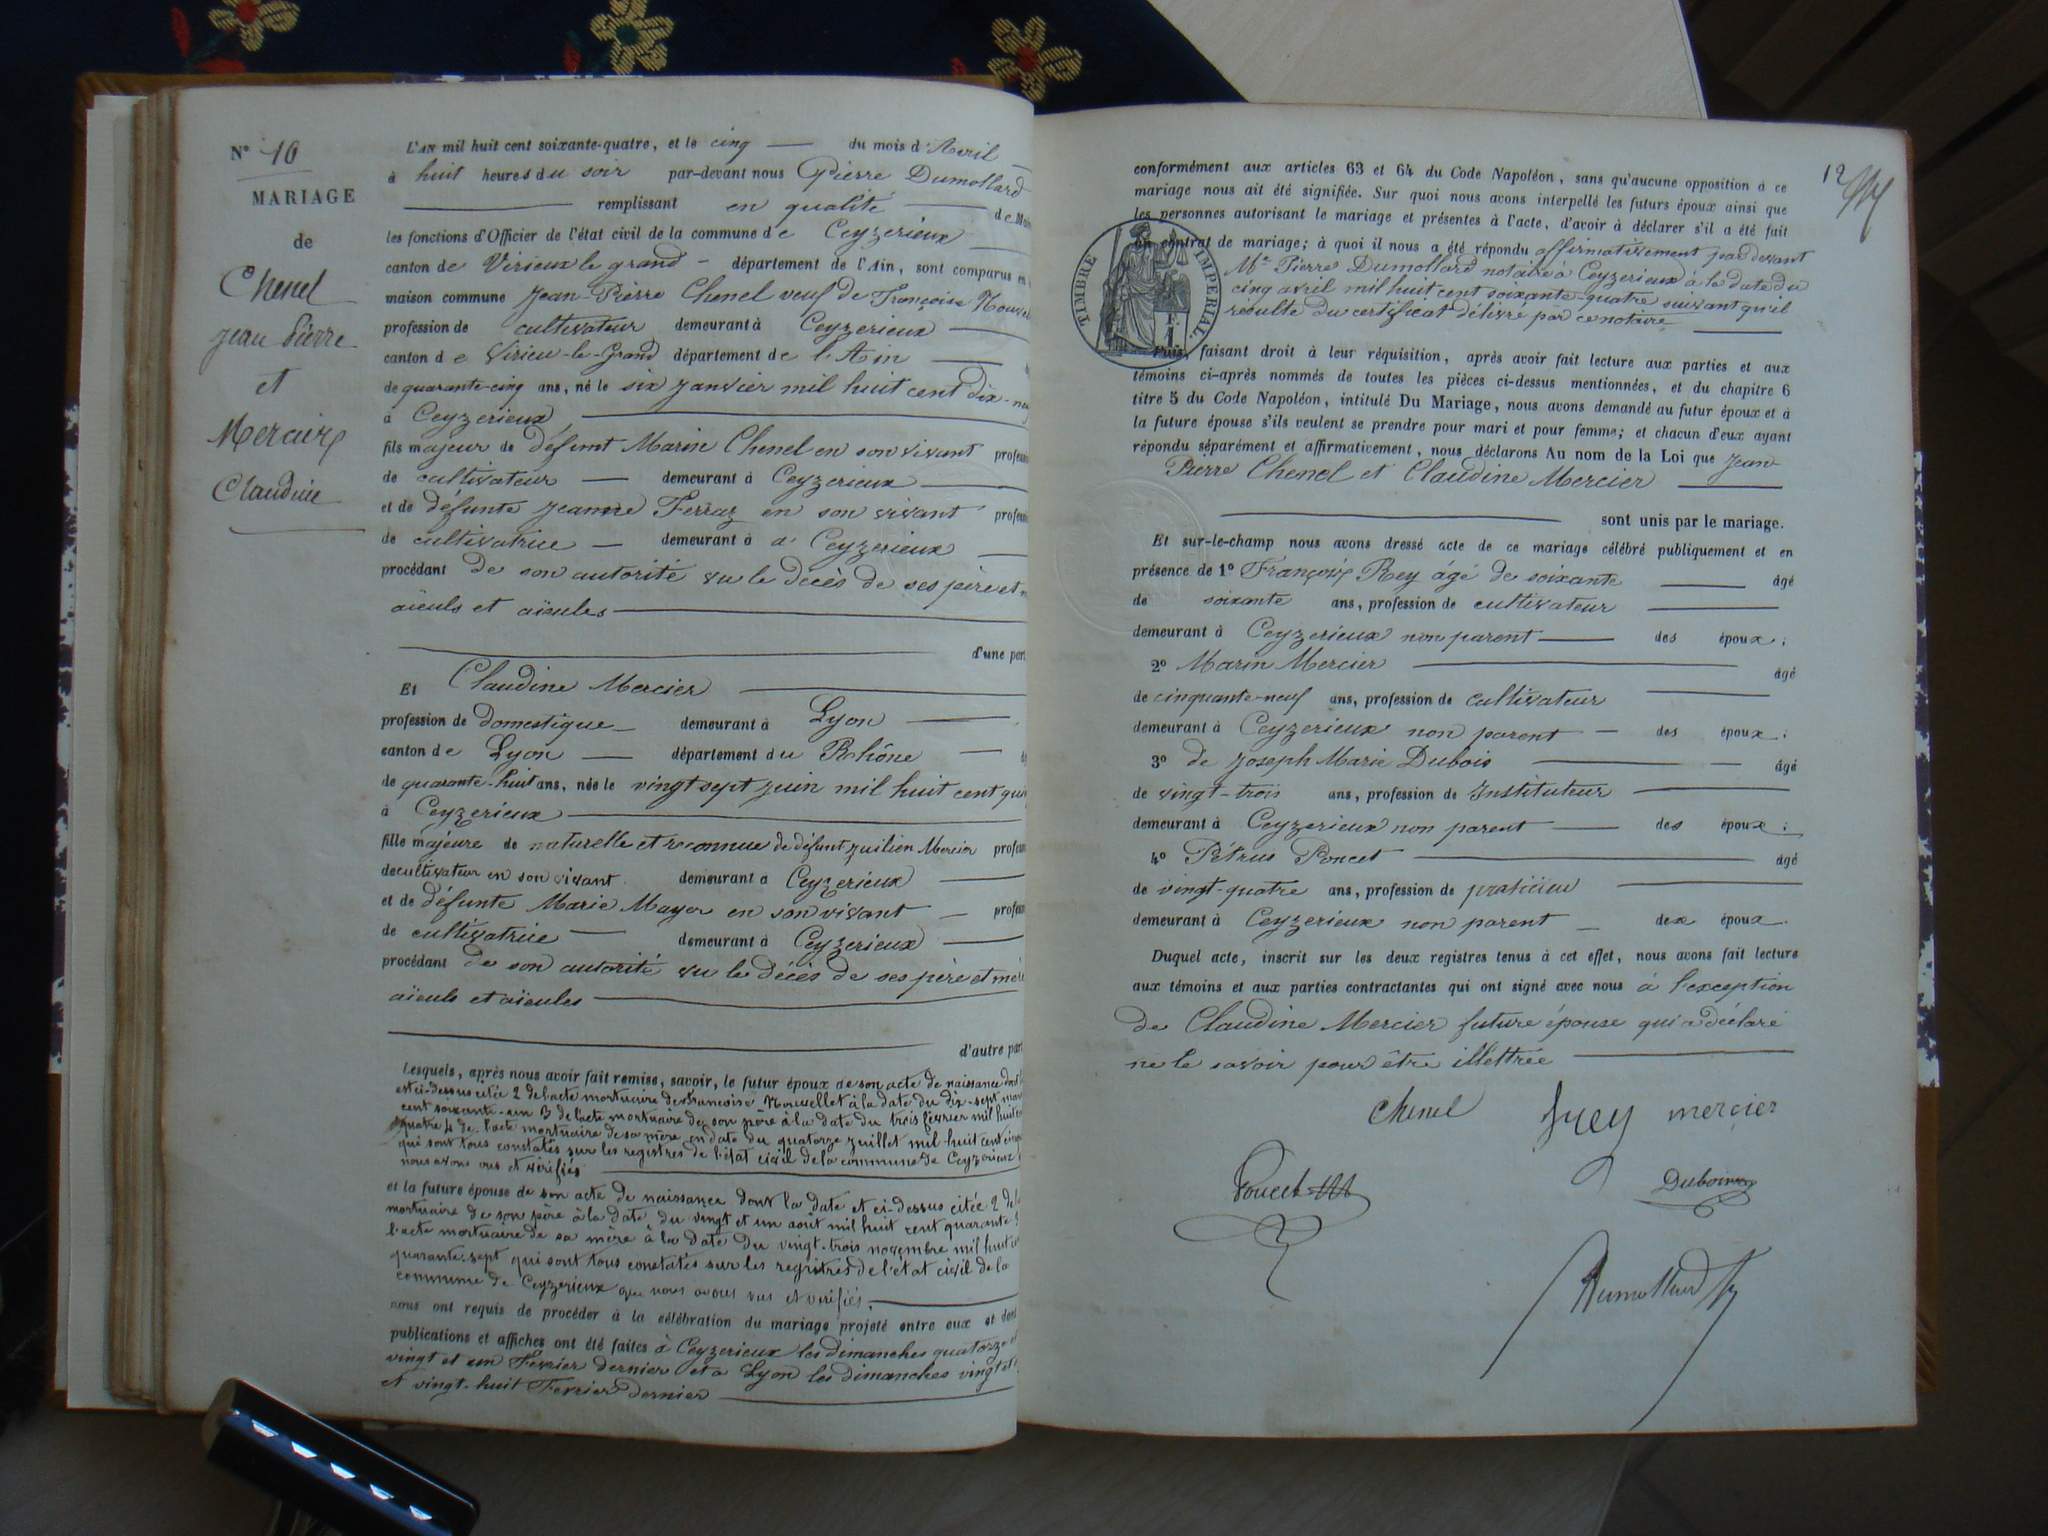 N° 10
MARIAGE
de
Chenel
Jean Pierre
et
Mercier
Claudine
L'AN mil huit cent soixante-quatre, et le cinq du mois d'Avril
à huit heures du soir par-devant nous Pierre Dumollard
remplissant en qualité de
les fonctions d'Officier de l'état civil de la commune de Ceyzerieux
canton de Virieux le grand département de l'Ain, sont comparus en
maison commune Jean-Pierre Chenel veuf de Françoise
profession de cultivateur demeurant à Ceyzerieux
canton de Virieu-le-Grand département de l'Ain
de quarante-cinq ans, né le six janvier mil huit cent dix-
à Ceyzerieux
fils majeur de défunt Marin Chenel en son vivant
de cultivateur demeurant à Ceyzerieux
et de défunte Jeanne Ferraz en son vivant
de cultivatrice demeurant à à Ceyzerieux
procédant de son autorité vu le décès de ses père et
aïeuls et aïeules
d'une part
Et Claudine Mercier
profession de domestique demeurant à Lyon
canton de Lyon département du Rhône
de quarante-huit ans, née le vingt sept juin mil huit cent
à Ceyzerieux
fille majeure de naturelle et reconnue de défunt Juilien Mercier
de cultivateur en son vivant demeurant a Ceyzerieux
et de défunte Marie Mayer en son vivant
de cultivatrice demeurant à Ceyzerieux
procédant de son autorité vu le décès de ses père et mère
aïeuls et aïeules
d'autre part
Lesquels, après nous avoir fait remise, savoir, le futur époux de son acte de naissance dont
est ci-dessus citée 2 de l'acte mortuaire de Françoise Nouvellet à la date du dix-sept
cent soixante-un 3 de l'acte mortuaire de son père à la date du trois février mil huit
quatre 4 de l'acte mortuaire de sa mère en date du quatorze juillet mil huit cent
qui sont tous constatés sur les registres de l'état civil de la commune de Ceyzerieux
nous avons vus et vérifiés
et la future épouse de son acte de naissance dont la date et ci-dessus citée 2 de
mortuaire de son père à la date du vingt et un août mil huit cent quarante
l'acte mortuaire de sa mère à la date du vingt-trois novembre mil huit
quarante-sept qui sont tous constatés sur les registres de l'état civil de la
commune de Ceyzerieux que nous avons vus et vérifiés,
nous ont requis de procéder à la célébration du mariage projeté entre eux et dont
publications et affiches ont été faites à Ceyzerieux les dimanches quatorze
vingt et un Février dernier et à Lyon les dimanches vingt et
et vingt-huit Fevrier dernier
12
conformément aux articles 63 et 64 du Code Napoléon, sans qu'aucune opposition à ce
mariage nous ait été signifiée. Sur quoi nous avons interpellé les futurs époux ainsi que
les personnes autorisant le mariage et présentes à l'acte, d'avoir à déclarer s'il a été fait
un contrat de mariage; à quoi il nous a été répondu affirmativement par devant
Me Pierre Dumollard notaire à Ceyzerieux à la date du
cinq avril mil huit cent soixante-quatre suivant qu'il
résulte du certificat délivré par ce notaire
TIMBRE IMPERIAL
Puis, faisant droit à leur réquisition, après avoir fait lecture aux parties et aux
témoins ci-après nommés de toutes les pièces ci-dessus mentionnées, et du chapitre 6
titre 5 du Code Napoléon, intitulé Du Mariage, nous avons demandé au futur époux et à
la future épouse s'ils veulent se prendre pour mari et pour femme; et chacun d'eux ayant
répondu séparément et affirmativement, nous déclarons Au nom de la Loi que Jean-
Pierre Chenel et Claudine Mercier
sont unis par le mariage.
Et sur-le-champ nous avons dressé acte de ce mariage célébré publiquement et en
présence de 1° François Rey âgé de soixante âgé
de soixante ans, profession de cultivateur
demeurant à Ceyzerieux non parent des époux;
2° Marin Mercier âgé
de cinquante-neuf ans, profession de cultivateur
demeurant à Ceyzerieux non parent des époux;
3° de Joseph Marie Dubois âgé
de vingt-trois ans, profession de Instituteur
demeurant à Ceyzerieux non parent des époux;
4° Pétrus Poncet âgé
de vingt-quatre ans, profession de praticien
demeurant à Ceyzerieux non parent des époux.
Duquel acte, inscrit sur les deux registres tenus à cet effet, nous avons fait lecture
aux témoins et aux parties contractantes qui ont signé avec nous à l'exception
de Claudine Mercier future épouse qui a déclaré
ne le savoir pour être illettrée
Chenel
mercier
Poncet
Dubois
Dumollard